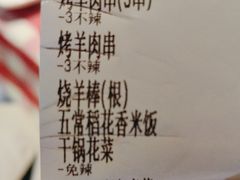 烤羊肉串(3串)
-3不辣
烤羊肉串
-3不辣
烧羊棒(根)
五常稻花香米饭
干锅花菜
-免辣